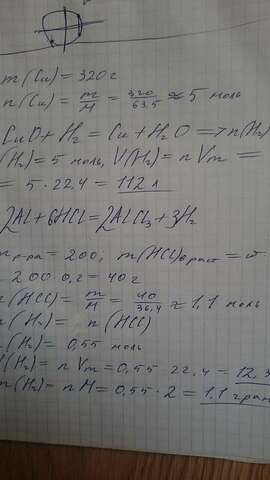 m(Cu) = 320 г
n(Cu) = m/M = 320/63,5 ≈ 5 моль
CuO + H₂ = Cu + H₂O => n(H₂)
(H₂) = 5 моль, V(H₂) = n Vm =
= 5 · 22,4 = 112 л
2Al + 6HCl = 2AlCl₃ + 3H₂
m р-ра = 200; m(HCl) в раст = ω ·
200 · 0,2 = 40 г
n(HCl) = m/M = 40/36,4 ≈ 1,1 моль
n(H₂) = n(HCl)
(H₂) = 0,55 моль
V(H₂) = n Vm = 0,55 · 22,4 = 12,3
m(H₂) = n M = 0,55 · 2 = 1,1 грам